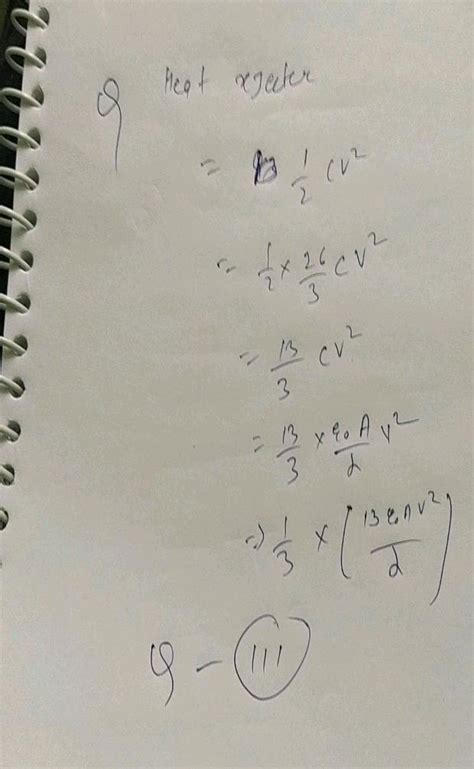 Q Heat rejecter
= 1/2 CV²
= 1/2 × 26/3 CV²
= 13/3 CV²
= 13/3 × ε₀A/d V²
=> 1/3 × (13ε₀AV²/d)
Q – III